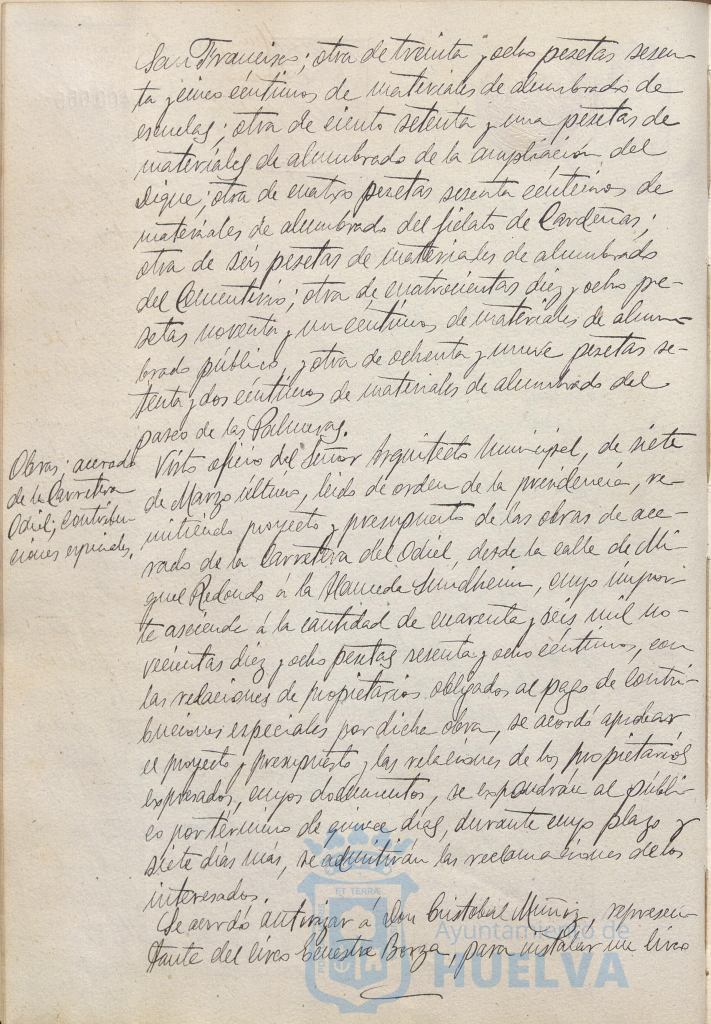 San Francisco; otra de treinta y ocho pesetas sesen-
ta y cinco céntimos de materiales de alumbrado de
escuelas; otra de ciento setenta y una pesetas de
materiales de alumbrado de la ampliación del
Dique; otra de cuatro pesetas sesenta céntimos de
materiales de alumbrado del fielato de Cardeñas;
otra de seis pesetas de materiales de alumbrado
del Cementerio; otra de cuatrocientas diez y ocho pe-
setas noventa y un céntimos de materiales de alum-
brado público, y otra de ochenta y nueve pesetas se-
tenta y dos céntimos de materiales de alumbrado del
paseo de las Palmeras.
Obras; acerado
de la Carretera
Odiel; contribu-
ciones especiales.
Visto oficio del Señor Arquitecto Municipal, de siete
de Marzo último, leido de orden de la presidencia, re-
mitiendo proyecto y presupuesto de las obras de ace-
rado de la Carretera del Odiel, desde la calle de Mi-
guel Redondo á la Alameda Sundheim, cuyo impor-
te asciende á la cantidad de cuarenta y seis mil no-
vecientas diez y ocho pesetas sesenta y ocho céntimos, con
las relaciones de propietarios obligados al pago de contri-
buciones especiales por dicha obra, se acordó aprobar
el proyecto y presupuesto y las relaciones de los propietarios
expresados, cuyos documentos, se expondrán al públi-
co por término de quince días, durante cuyo plazo y
siete días más, se admitirán las reclamaciones de los
interesados.
Se acordó autorizar á Don Cristobal Muñiz, represen-
tante del circo ecuestre Borza, para instalar un circo
ET TERRÆ
Ayuntamiento de
HUELVA